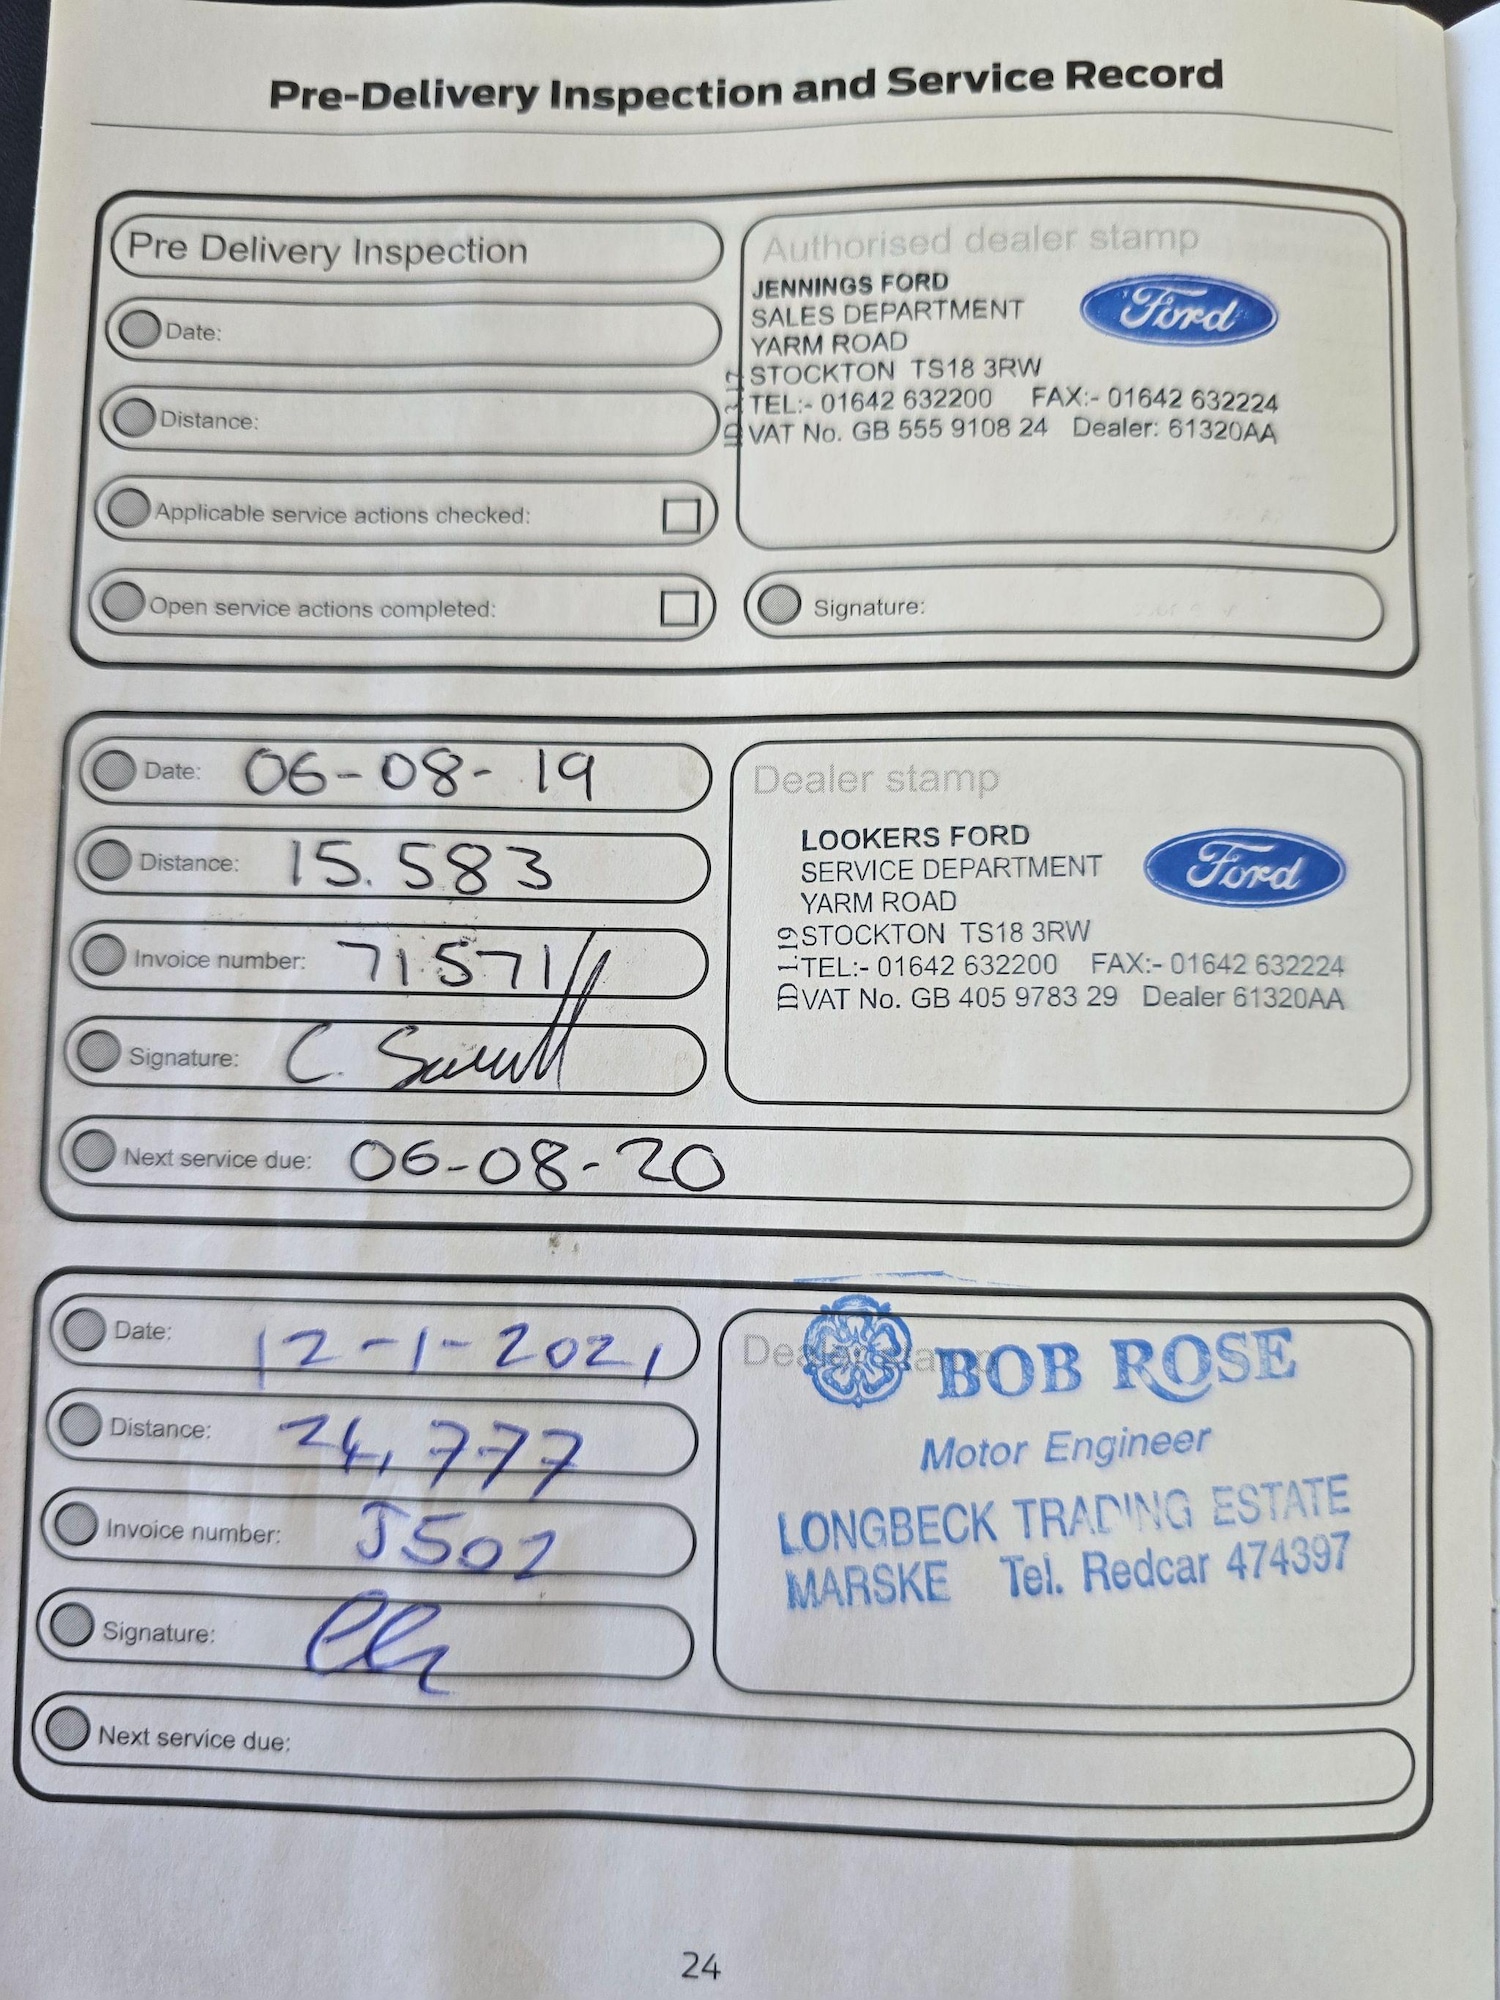 Pre-Delivery Inspection and Service Record
Pre Delivery Inspection
Date:
Distance:
Applicable service actions checked:
Open service actions completed:
Authorised dealer stamp
JENNINGS FORD
SALES DEPARTMENT
YARM ROAD
STOCKTON TS18 3RW
TEL:- 01642 632200 FAX:- 01642 632224
VAT No. GB 555 9108 24 Dealer: 61320AA
Ford
Signature:
Date: 06-08-19
Distance: 15.583
Invoice number: 71571
Signature: C.
Next service due: 06-08-20
Dealer stamp
LOOKERS FORD
SERVICE DEPARTMENT
YARM ROAD
STOCKTON TS18 3RW
TEL:- 01642 632200 FAX:- 01642 632224
VAT No. GB 405 9783 29 Dealer 61320AA
ID 1.19
Ford
Date: 12-1-2021
Distance: 24,777
Invoice number: J502
Signature:
Next service due:
Dealer stamp
BOB ROSE
Motor Engineer
LONGBECK TRADING ESTATE
MARSKE Tel. Redcar 474397
24